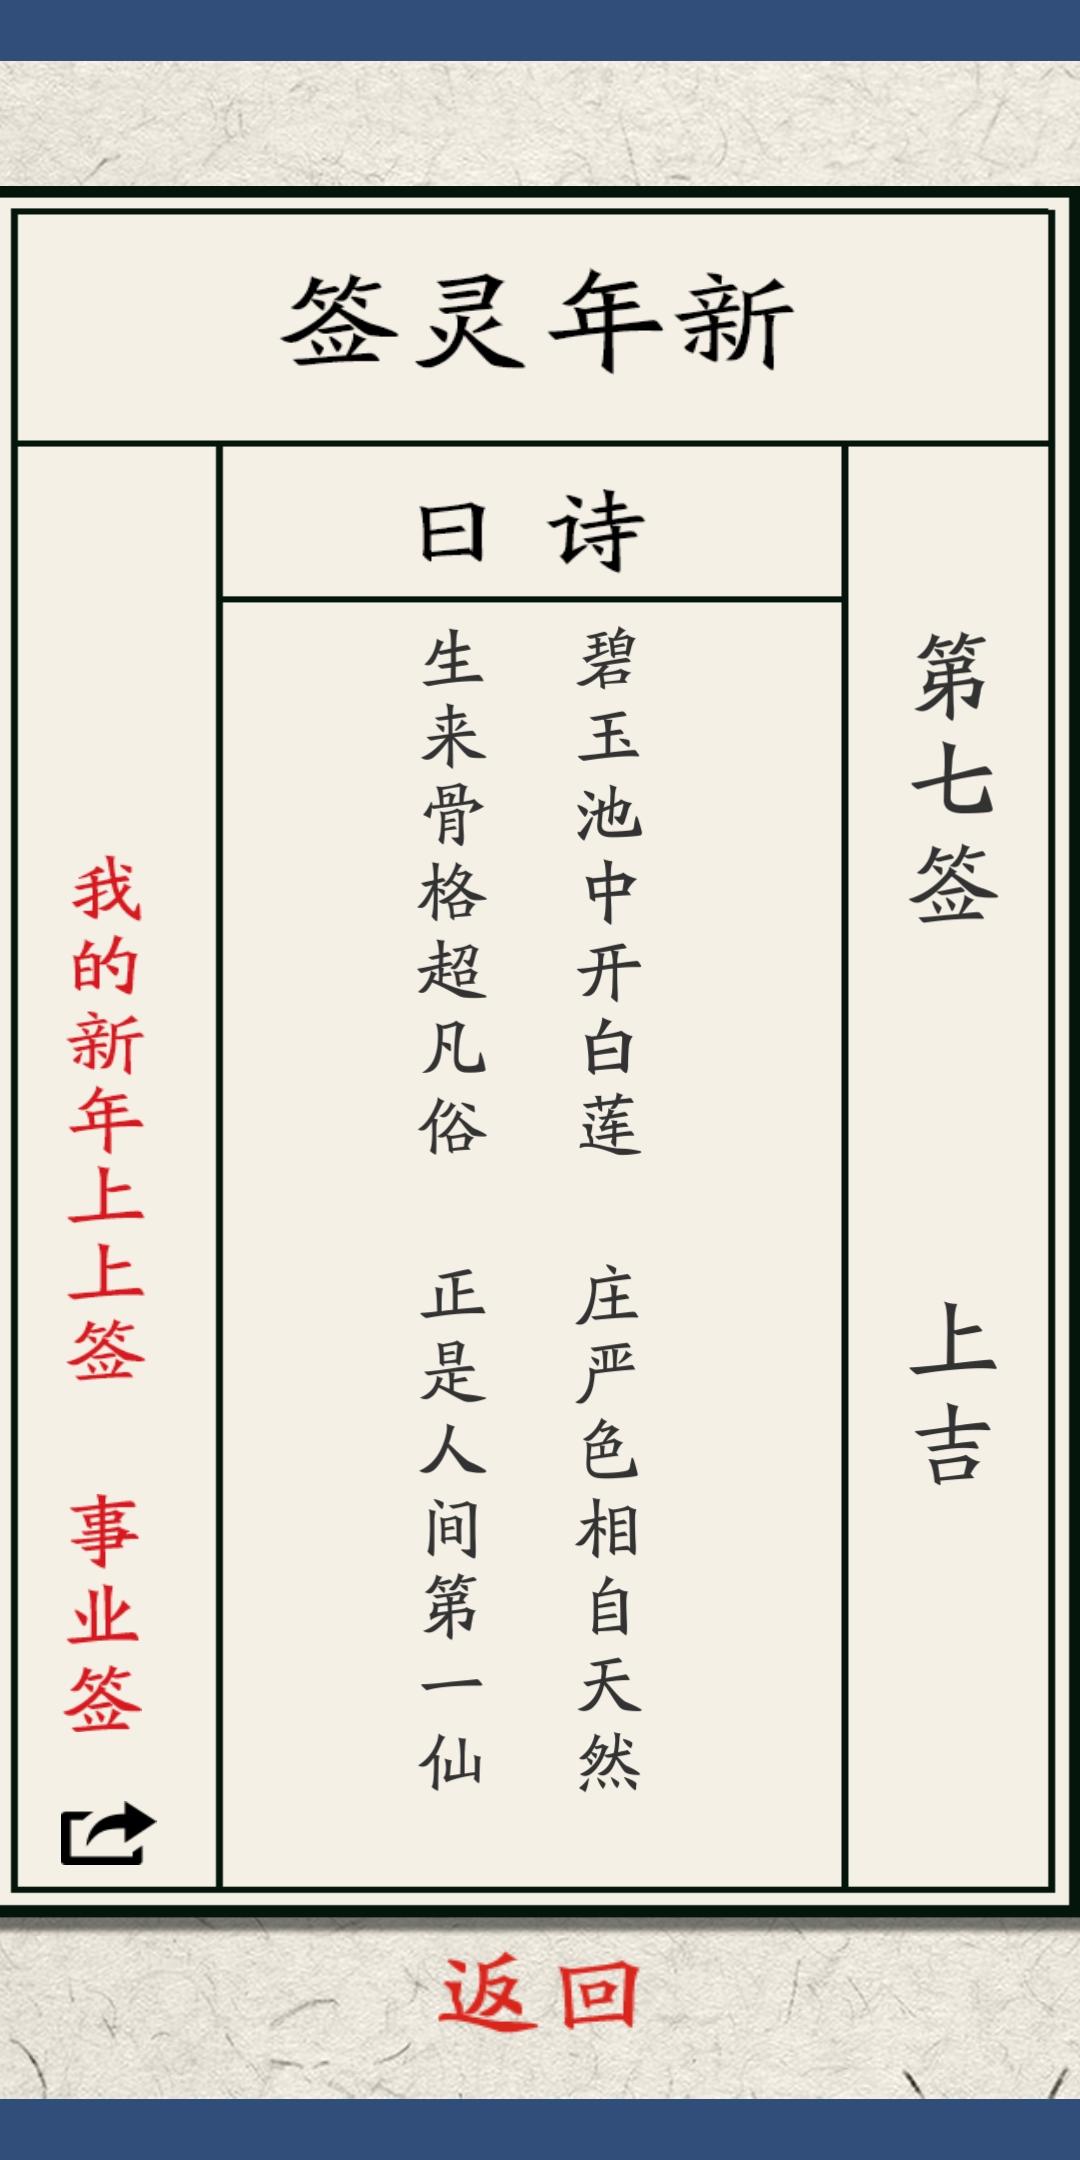 新年灵签
第七签
上吉
诗曰
碧玉池中开白莲
庄严色相自天然
生来骨格超凡俗
正是人间第一仙
我的新年上上签
事业签
返回